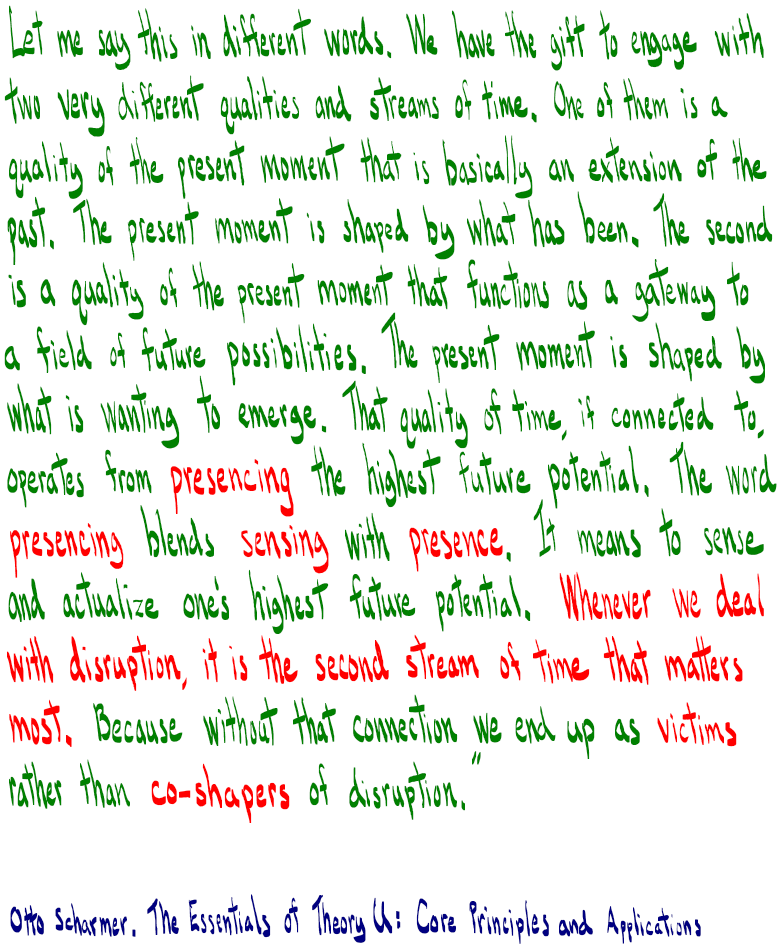 Let me say this in different words. We have the gift to engage with
two very different qualities and streams of time. One of them is a
quality of the present moment that is basically an extension of the
past. The present moment is shaped by what has been. The second
is a quality of the present moment that functions as a gateway to
a field of future possibilities. The present moment is shaped by
what is wanting to emerge. That quality of time, if connected to,
operates from presencing the highest future potential. The word
presencing blends sensing with presence. It means to sense
and actualize one's highest future potential. Whenever we deal
with disruption, it is the second stream of time that matters
most. Because without that connection we end up as victims
rather than co-shapers of disruption."
Otto Scharmer. The Essentials of Theory U: Core Principles and Applications